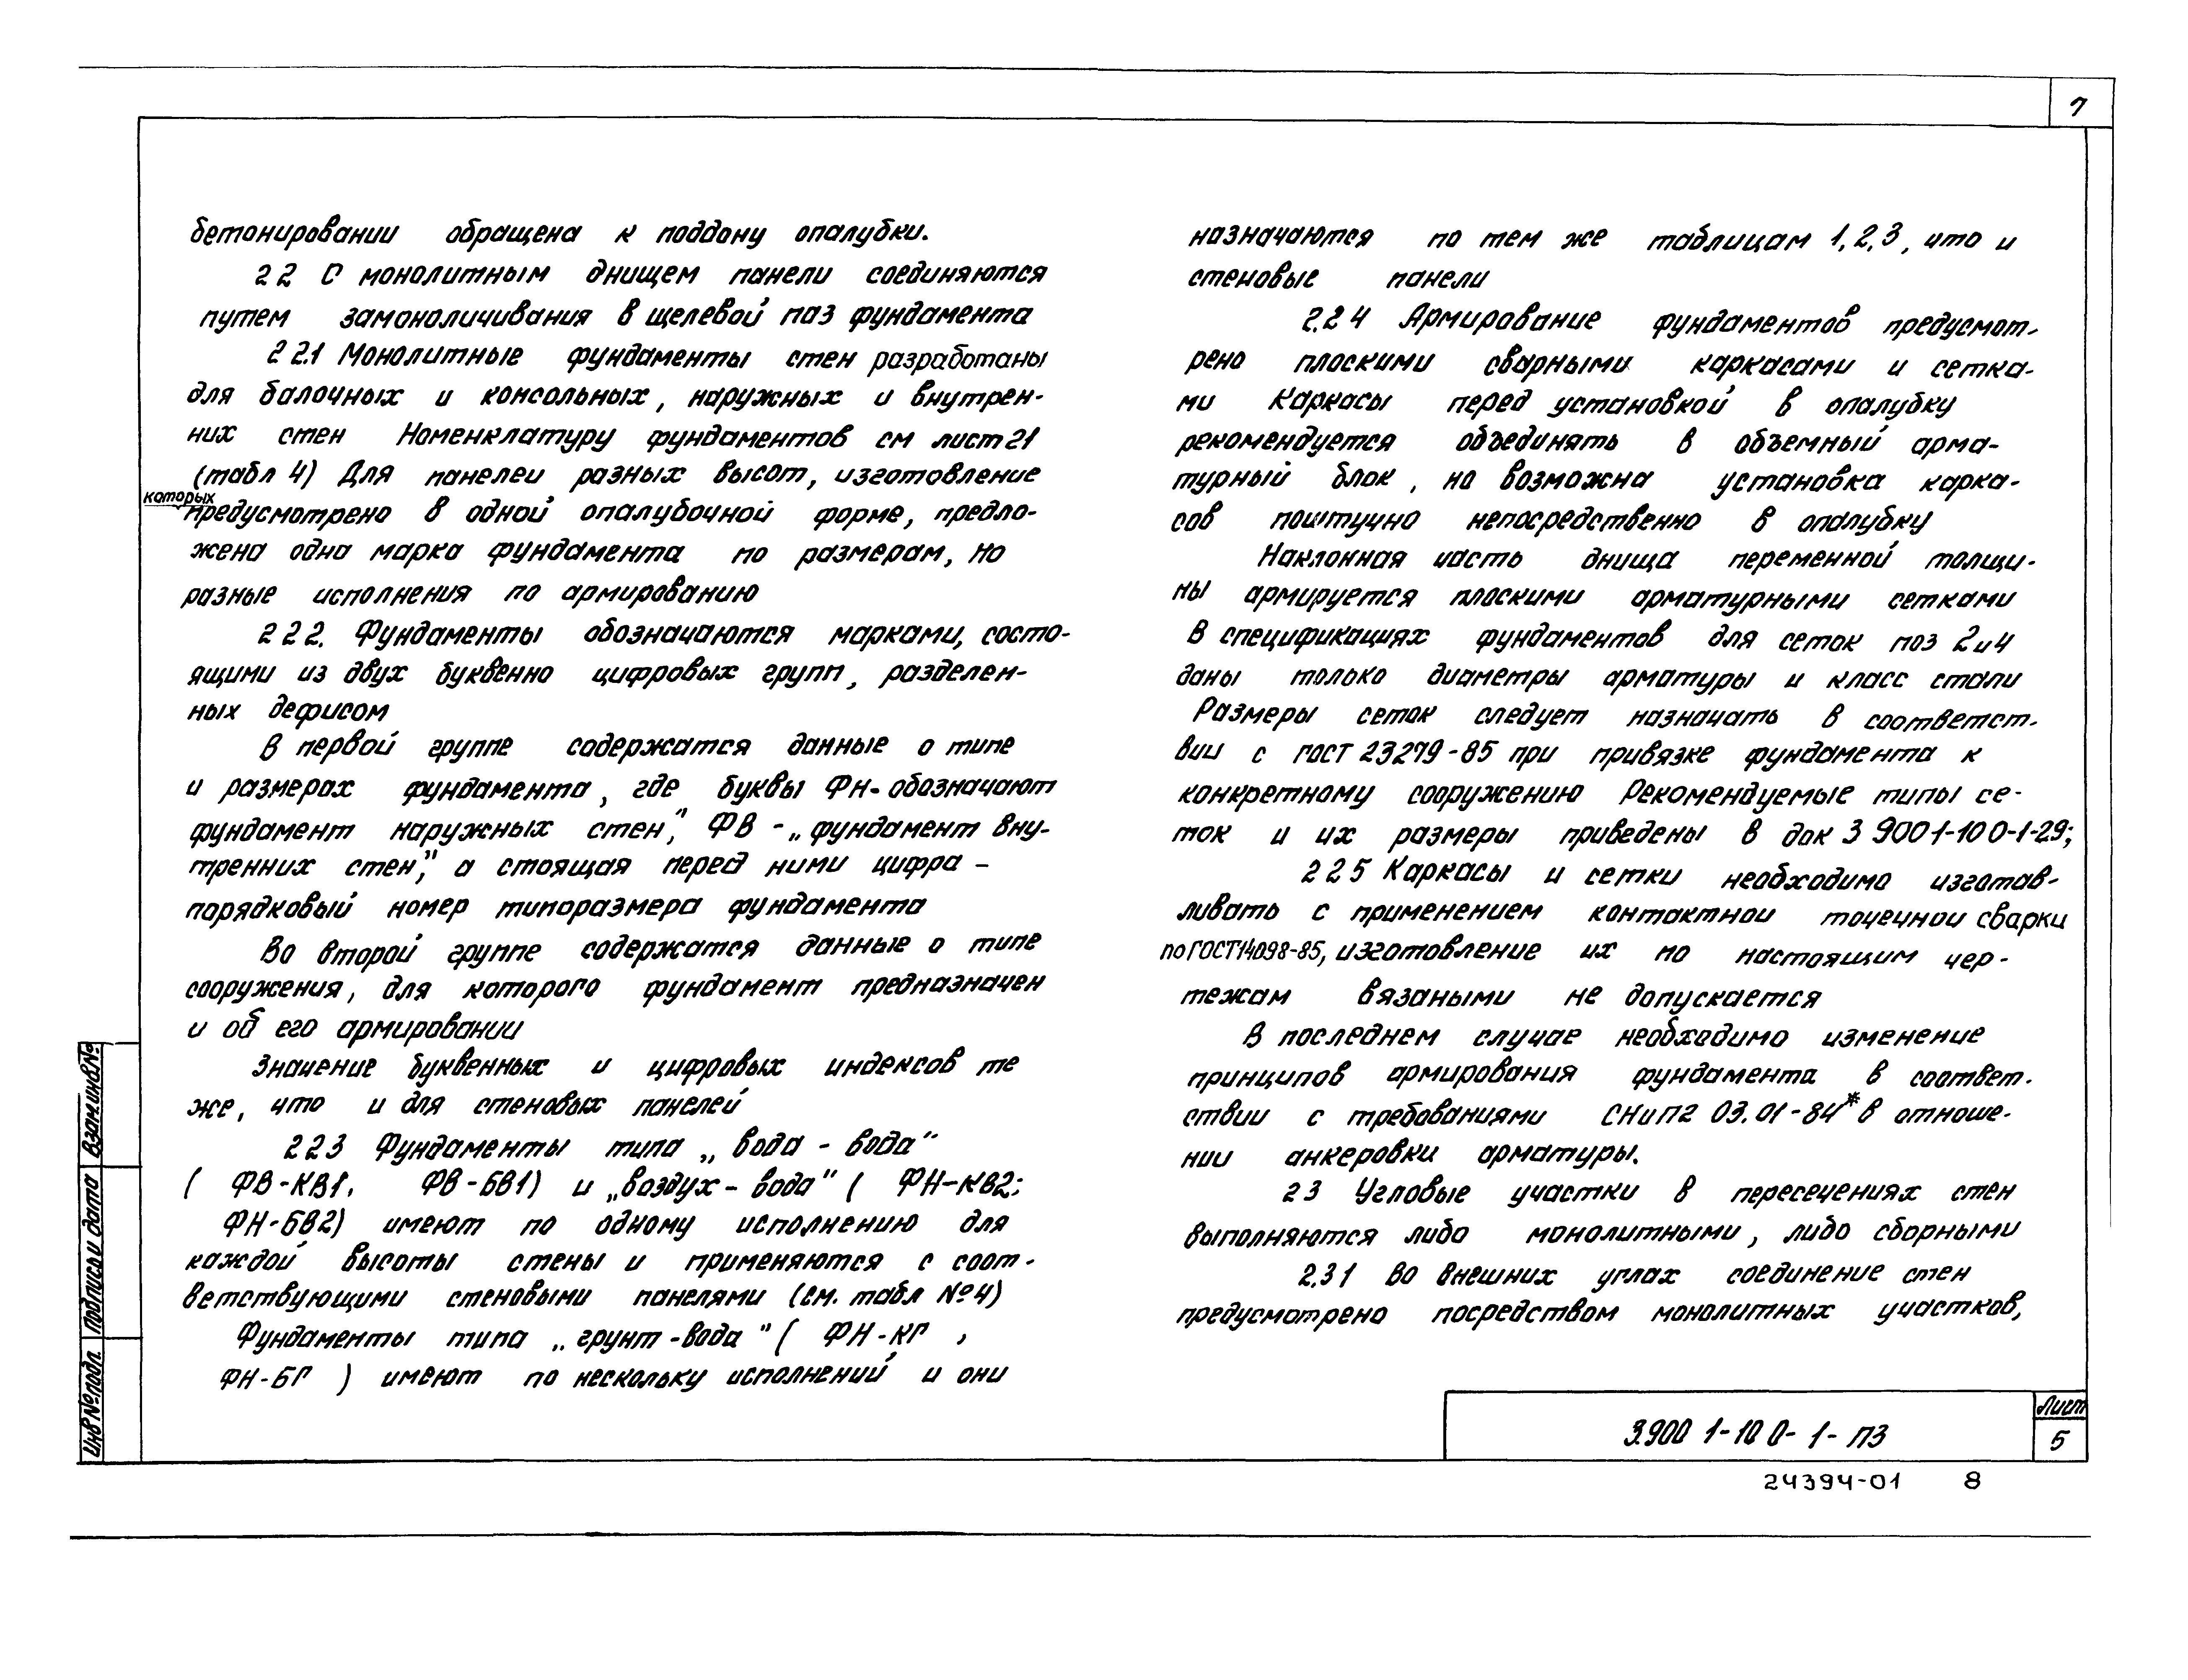 7
бетонировании обращена к поддону опалубки.
2 2 С монолитным днищем панели соединяются
путем замоноличивания в щелевой паз фундамента
2 2.1 Монолитные фундаменты стен разработаны
для балочных и консольных, наружных и внутрен-
них стен Номенклатуру фундаментов см лист 21
(табл 4) Для панелей разных высот, изготовление
которых
предусмотрено в одной опалубочной форме, предло-
жена одна марка фундамента по размерам, но
разные исполнения по армированию
2 2 2. Фундаменты обозначаются марками, состо-
ящими из двух буквенно цифровых групп, разделен-
ных дефисом
В первой группе содержатся данные о типе
и размерах фундамента, где буквы ФН-обозначают
фундамент наружных стен," ФВ - „фундамент вну-
тренних стен," а стоящая перед ними цифра -
порядковый номер типоразмера фундамента
Во второй группе содержатся данные о типе
сооружения, для которого фундамент предназначен
и об его армировании
Значение буквенных и цифровых индексов те
же, что и для стеновых панелей
2 2 3 Фундаменты типа „вода - вода"
( ФВ-КВ1, ФВ-БВ1) и „воздух-вода" ( ФН-КВ2;
ФН-БВ2) имеют по одному исполнению для
каждой высоты стены и применяются с соот-
ветствующими стеновыми панелями (см. табл №4)
Фундаменты типа „грунт-вода" ( ФН-КГ ,
ФН-БГ ) имеют по нескольку исполнений и они
назначаются по тем же таблицам 1,2,3, что и
стеновые панели
2.2 4 Армирование фундаментов предусмот-
рено плоскими сварными каркасами и сетка-
ми Каркасы перед установкой в опалубку
рекомендуется объединять в объемный арма-
турный блок, но возможна установка карка-
сов поштучно непосредственно в опалубку
Наклонная часть днища переменной толщи-
ны армируется плоскими арматурными сетками
В спецификациях фундаментов для сеток поз 2 и 4
даны только диаметры арматуры и класс стали
Размеры сеток следует назначать в соответст-
вии с ГОСТ 23279-85 при привязке фундамента к
конкретному сооружению Рекомендуемые типы се-
ток и их размеры приведены в док 3 900 1-10 0-1-29;
2 2 5 Каркасы и сетки необходимо изготав-
ливать с применением контактной точечной сварки
по ГОСТ14098-85, изготовление их по настоящим чер-
тежам вязаными не допускается
В последнем случае необходимо изменение
принципов армирования фундамента в соответ-
ствии с требованиями СНиП2 03.01-84* в отноше-
нии анкеровки арматуры.
2 3 Угловые участки в пересечениях стен
выполняются либо монолитными, либо сборными
2.3 1 Во внешних углах соединение стен
предусмотрено посредством монолитных участков,
Инв№подл. Подпись и дата Взам.инв№
3.900 1-10 0-1-ПЗ
Лист
5
24394-01 8